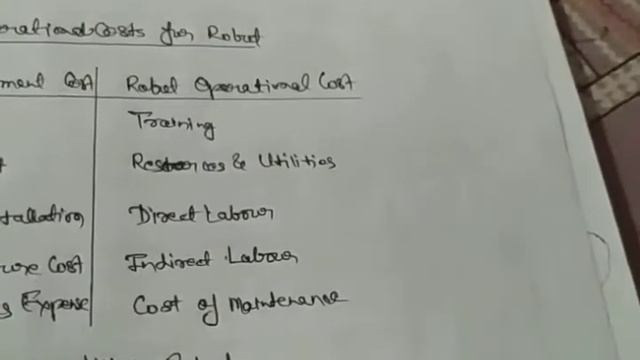 Costs for Robot
Cost Robot Operational Cost
Training
Resources & Utilities
Direct Labour
Cost Indirect Labour
Expense Cost of Maintenance